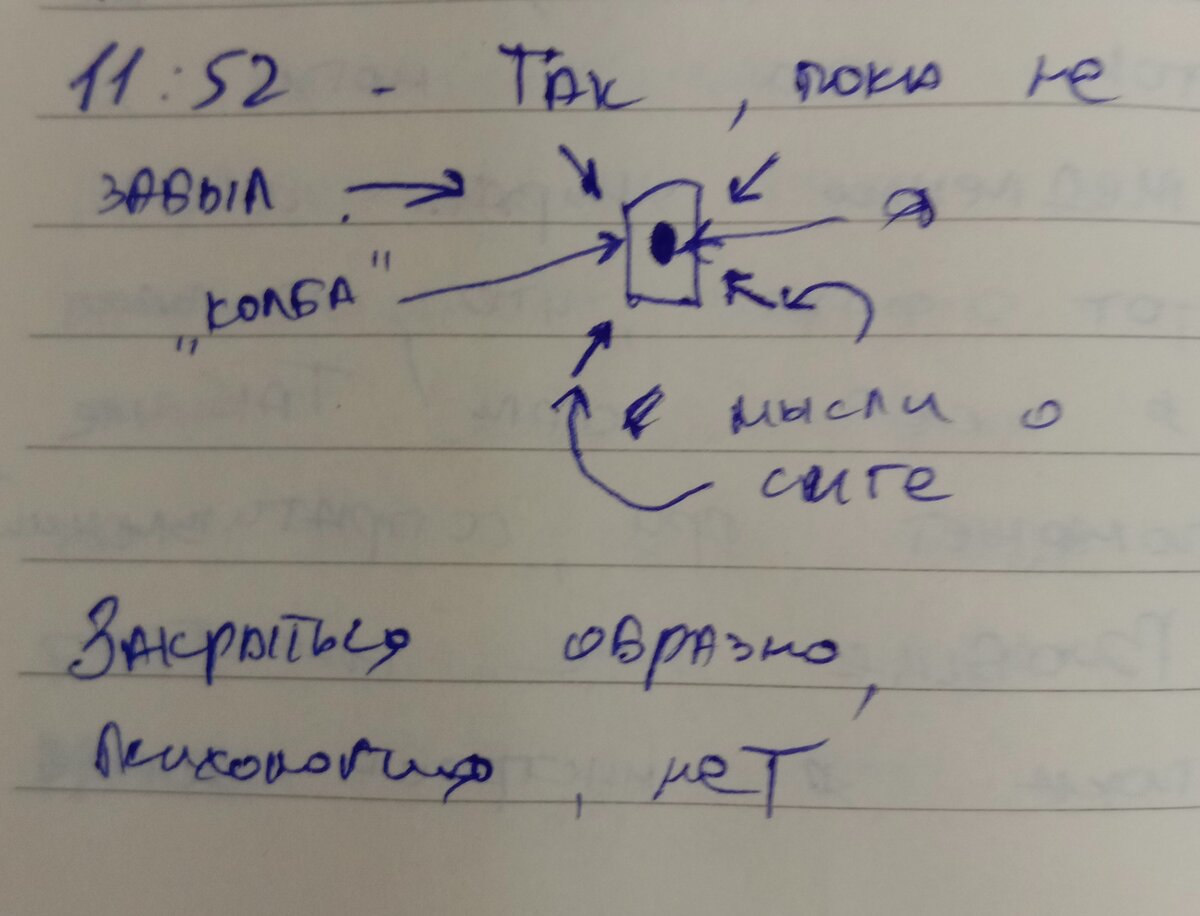 11:52 - Так, пока не
забыл →
Я
„колба"
мысли о
сиге
Закрыться образно,
Психология, нет